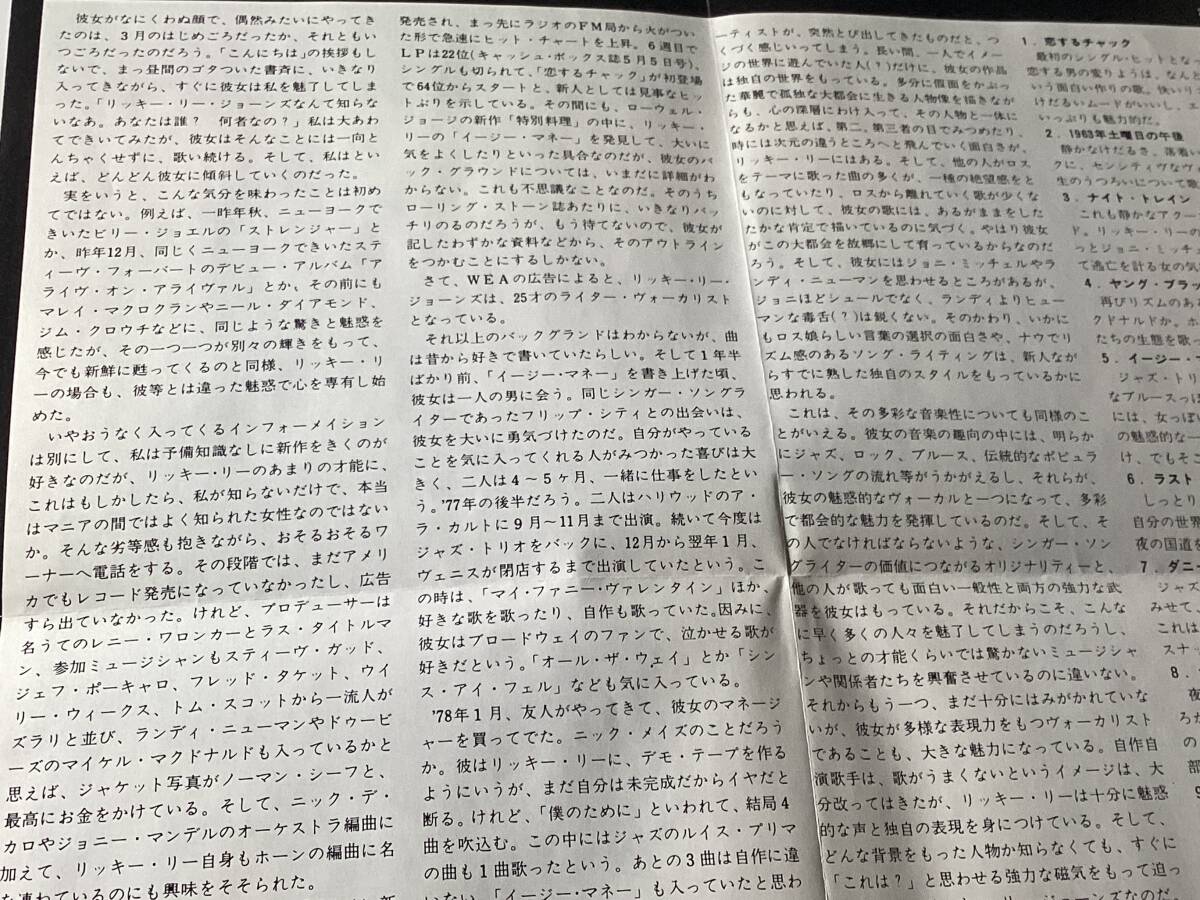 彼女がなにくわぬ顔で、偶然みたいにやってき
たのは、3月のはじめごろだったか、それともい
つごろだったのだろう。「こんにちは」の挨拶もし
ないで、まっ昼間のゴタついた書斉に、いきなり
入ってきながら、すぐに彼女は私を魅了してしま
った。「リッキー・リー・ジョーンズなんて知らな
いなあ。あなたは誰？　何者なの？」私は大あわ
てできいてみたが、彼女はそんなことには一向と
んちゃくせずに、歌い続ける。そして、私はとい
えば、どんどん彼女に傾斜していくのだった。
実をいうと、こんな気分を味わったことは初め
てではない。例えば、一昨年秋、ニューヨークで
きいたビリー・ジョエルの「ストレンジャー」と
か、昨年12月、同じくニューヨークできいたステ
ィーヴ・フォーバートのデビュー・アルバム「ア
ライヴ・オン・アライヴァル」とか、その前にも
マレイ・マクロクランやニール・ダイアモンド、
ジム・クロウチなどに、同じような驚きと魅惑を
感じたが、その一つ一つが別々の輝きをもって、
今でも新鮮に甦ってくるのと同様、リッキー・リ
ーの場合も、彼等とは違った魅惑で心を専有し始
めた。
いやおうなく入ってくるインフォーメイション
は別にして、私は予備知識なしに新作をきくのが
好きなのだが、リッキー・リーのあまりの才能に、
これはもしかしたら、私が知らないだけで、本当
はマニアの間ではよく知られた女性なのではない
か。そんな劣等感も抱きながら、おそるおそるワ
ーナーへ電話をする。その段階では、まだアメリ
カでもレコード発売になっていなかったし、広告
すら出ていなかった。けれど、プロデューサーは
名うてのレニー・ワロンカーとラス・タイトルマ
ン、参加ミュージシャンもスティーヴ・ガッド、
ジェフ・ポーキャロ、フレッド・タケット、ウイ
リー・ウィークス、トム・スコットから一流人が
ズラリと並び、ランディ・ニューマンやドゥービ
ーズのマイケル・マクドナルドも入っているかと
思えば、ジャケット写真がノーマン・シーフと、
最高にお金をかけている。そして、ニック・デ・
カロやジョニー・マンデルのオーケストラ編曲に
加えて、リッキー・リー自身もホーンの編曲に名
を連ねているのにも興味をそそられた。
発売され、まっ先にラジオのFM局から火がつい
た形で急速にヒット・チャートを上昇。6週目で
LPは22位(キャッシュ・ボックス誌5月5日号)、
シングルも切られて、「恋するチャック」が初登場
で64位からスタートと、新人としては見事なヒッ
トぶりを示している。その間にも、ローウェル・
ジョージの新作「特別料理」の中に、リッキー・
リーの「イージー・マネー」を発見して、大いに
気をよくしたりといった具合なのだが、彼女のバ
ック・グラウンドについては、いまだに詳細がわ
からない。これも不思議なことなのだ。そのうち
ローリング・ストーン誌あたりに、いきなりバッ
チリのるのだろうが、もう待てないので、彼女が
記したわずかな資料などから、そのアウトライン
をつかむことにするしかない。
さて、WEAの広告によると、リッキー・リー・
ジョーンズは、25才のライター・ヴォーカリスト
となっている。
それ以上のバックグランドはわからないが、曲
は昔から好きで書いていたらしい。そして1年半
ばかり前、「イージー・マネー」を書き上げた頃、
彼女は一人の男に会う。同じシンガー・ソングラ
イターであったフリップ・シティとの出会いは、
彼女を大いに勇気づけたのだ。自分がやっている
ことを気に入ってくれる人がみつかった喜びは大
きく、二人は4～5ヶ月、一緒に仕事をしたとい
う。'77年の後半だろう。二人はハリウッドのア・
ラ・カルトに9月～11月まで出演。続いて今度は
ジャズ・トリオをバックに、12月から翌年1月、
ヴェニスが閉店するまで出演していたという。こ
の時は、「マイ・ファニー・ヴァレンタイン」ほか、
好きな歌を歌ったり、自作も歌っていた。因みに、
彼女はブロードウェイのファンで、泣かせる歌が
好きだという。「オール・ザ・ウェイ」とか「シン
ス・アイ・フェル」なども気に入っている。
'78年1月、友人がやってきて、彼女のマネージ
ャーを買ってでた。ニック・メイズのことだろう
か。彼はリッキー・リーに、デモ・テープを作る
ようにいうが、まだ自分は未完成だからイヤだと
断る。けれど、「僕のために」といわれて、結局4
曲を吹込む。この中にはジャズのルイス・プリマ
の曲も1曲歌ったという。あとの3曲は自作に違
いない。「イージー・マネー」も入っていたと思わ
ーティストが、突然とび出してきたものだと、つ
くづく感じいってしまう。長い間、一人でイメー
ジの世界に遊んでいた人(？)だけに、彼女の作品
は独自の世界をもっている。多分に仮面をかぶっ
た華麗で孤独な大都会に生きる人物像を描きなが
らも、心の深層にわけ入って、その人物と一体に
なるかと思えば、第二、第三者の目でみつめたり、
時には次元の違うところへと飛んでいく面白さが、
リッキー・リーにはある。そして、他の人がロス
をテーマに歌った曲の多くが、一種の絶望感をと
もなっていたり、ロスから離れていく歌が少くな
いのに対して、彼女の歌には、あるがままをした
たかな肯定で描いているのに気づく。やはり彼女
がこの大都会を故郷にして育っているからなのだ
ろう。そして、彼女にはジョニ・ミッチェルやラ
ンディ・ニューマンを思わせるところがあるが、
ジョニほどシュールでなく、ランディよりヒュー
マンな毒舌(？)は鋭くない。そのかわり、いかに
もロス娘らしい言葉の選択の面白さや、ナウでリ
ズム感のあるソング・ライティングは、新人なが
らすでに熟した独自のスタイルをもっているかに
思われる。
これは、その多彩な音楽性についても同様のこ
とがいえる。彼女の音楽の趣向の中には、明らか
にジャズ、ロック、ブルース、伝統的なポピュラ
ー・ソングの流れ等がうかがえるし、それらが、
彼女の魅惑的なヴォーカルと一つになって、多彩
で都会的な魅力を発揮しているのだ。そして、そ
の人でなければならないような、シンガー・ソン
グライターの価値につながるオリジナリティーと、
他の人が歌っても面白い一般性と両方の強力な武
器を彼女はもっている。それだからこそ、こんな
に早く多くの人々を魅了してしまうのだろうし、
ちょっとの才能くらいでは驚かないミュージシャ
ンや関係者たちを興奮させているのに違いない。
それからもう一つ、まだ十分にはみがかれていな
いが、彼女が多様な表現力をもつヴォーカリスト
であることも、大きな魅力になっている。自作自
演歌手は、歌がうまくないというイメージは、大
分改ってはきたが、リッキー・リーは十分に魅惑
的な声と独自の表現を身につけている。そして、
どんな背景をもった人物か知らなくても、すぐに
「これは？」と思わせる強力な磁気をもって迫っ
リー・ジョーンズなのだ。
1．恋するチャック
最初のシングル・ヒットとな
恋する男の変りようは、なんと
いう面白い作りの歌。快いリ
けだるいムードがいいし、エ
いっぷりも魅力的だ。
2．1963年土曜日の午後
静かなけだるさ、落着い
クに、センシティヴなヴ
生のうつろいについて歌
3．ナイト・トレイン
これも静かなアクー
ド。リッキー・リーの
っとジョニ・ミッチ
て逃亡を計る女の気
4．ヤング・ブラッ
再びリズムのあ
クドナルドか。ホ
たちの生態を歌っ
5．イージー・
ジャズ・トリ
なブルースっぽ
には、女っぽ
の魅惑的な一
け、でもそこ
6．ラスト
しっとり
自分の世界
夜の国道を
7．ダニー
ジャズ
みせて、
これは
スナッ
8．
夜
ろだ
の
部
9